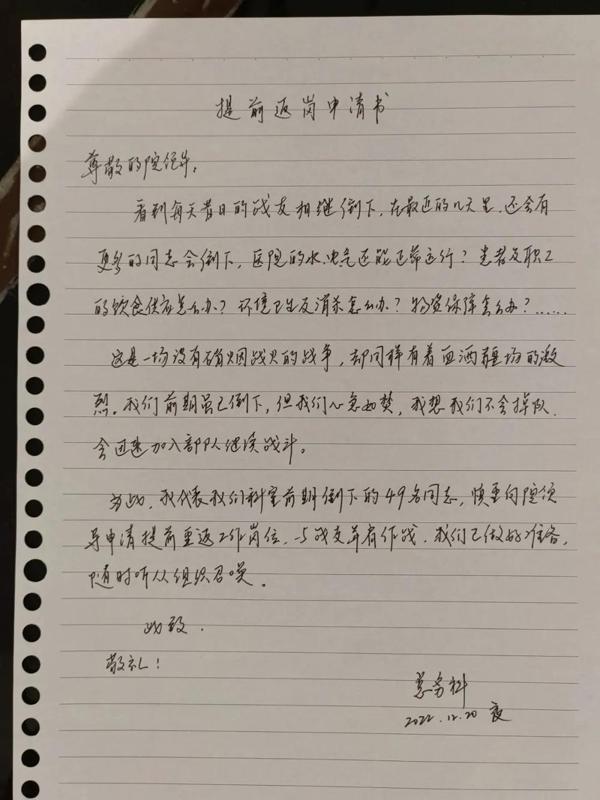 提前返岗申请书
尊敬的院领导,
看到每天昔日的战友相继倒下,在最近的几天里,还会有
更多的同志会倒下,医院的水、电、气还能正常运行?患者及职工
的饮食供应怎么办?环境卫生及消杀怎么办?物资保障怎么办?……
这是一场没有硝烟战火的战争,却同样有着血洒疆场的激
烈。我们前期虽已倒下,但我们心急如焚,我想我们不会掉队,
会迅速加入部队继续战斗。
为此,我代表我们科室前期倒下的49名同志,慎重向院领
导申请提前重返工作岗位,与战友并肩作战,我们已做好准备,
随时听从组织召唤。
此致.
敬礼!
总务科
2022.12.20 夜